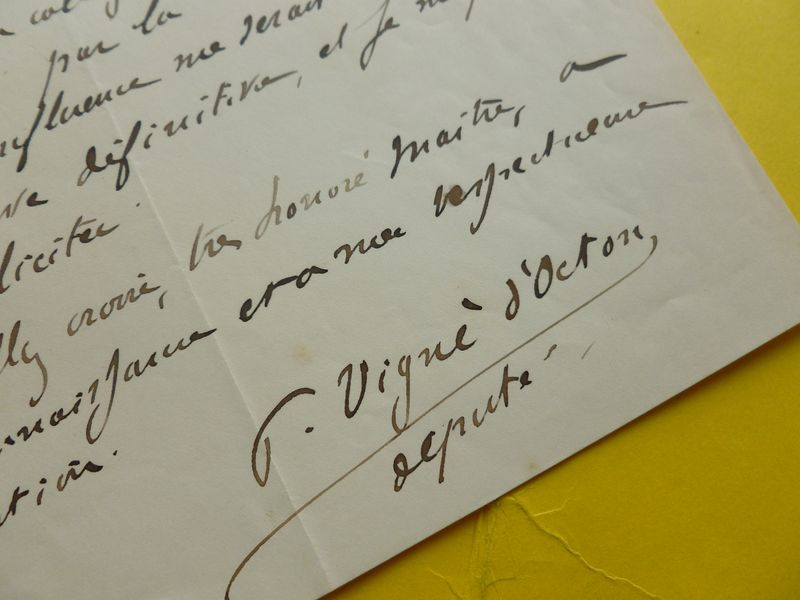 par la
influence me serait
définitive, et je
liciter.
croire, très honoré Maître, a
naissance et a ma respectueuse
ation.
P. Vigné d'Octon,
député.